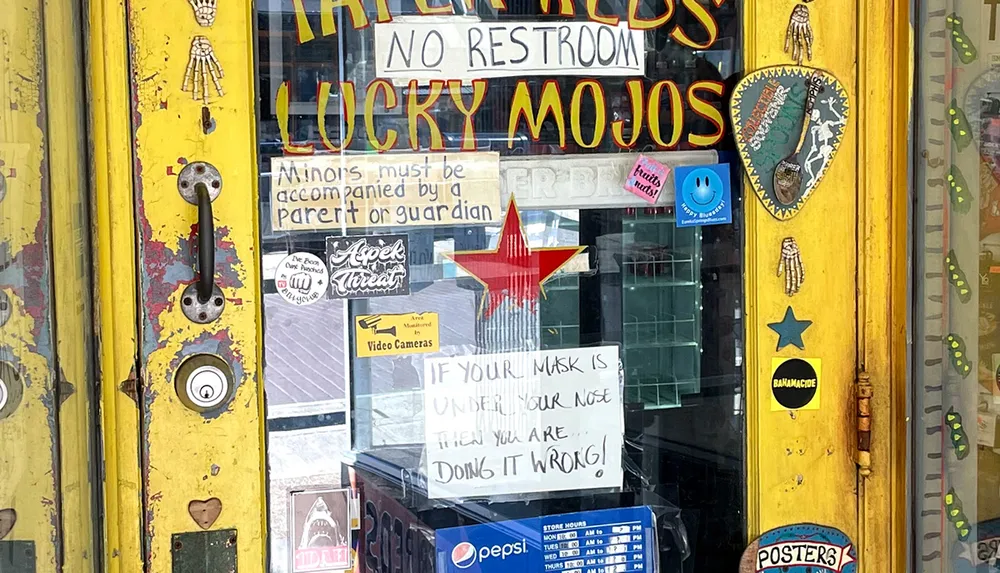 NO RESTROOM
LUCKY MOJOS
Minors must be
accompanied by a
parent or guardian
fruits
nuts!
Happy Blursday!
I've Been
Cunt Punched
Aspek
Threat
Area
Monitored
by
Video Cameras
IF YOUR MASK IS
UNDER YOUR NOSE
THEN YOU ARE...
DOING IT WRONG!
BANAMACIDE
pepsi
STORE HOURS
MON AM to PM
TUES AM to PM
WED AM to PM
THURS AM to PM
POSTERS